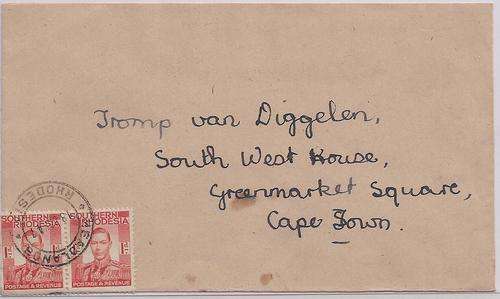 Tromp van Diggelen,
South West House,
Greenmarket Square,
Cape Town.
SOUTHERN RHODESIA
1D
POSTAGE & REVENUE
SOUTHERN RHODESIA
1D
POSTAGE & REVENUE
RHODES